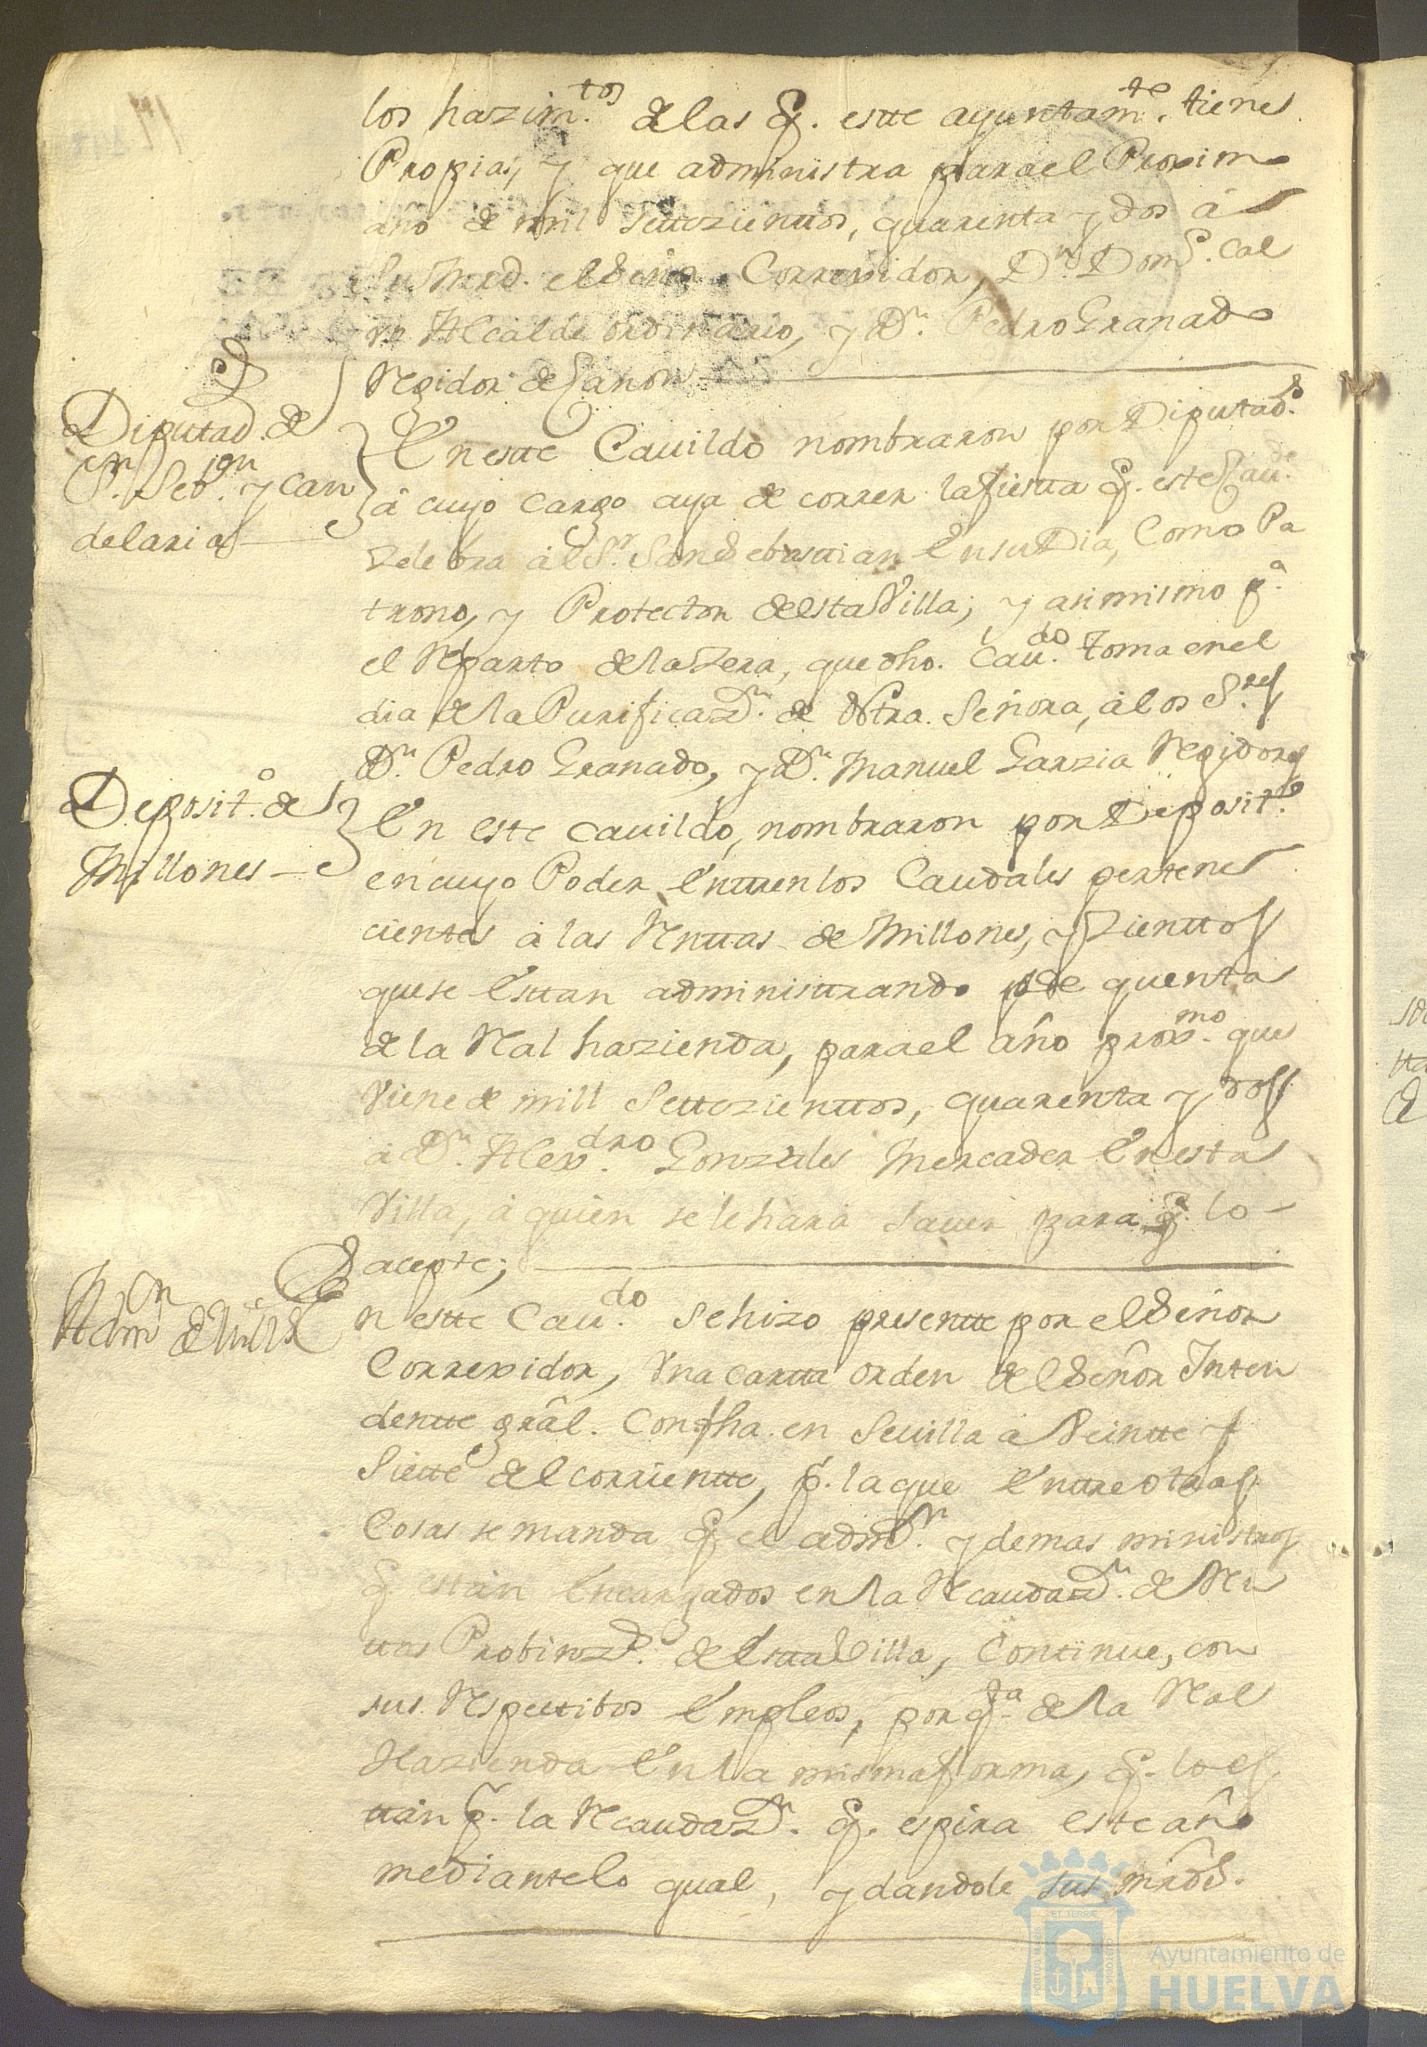 los hazim.tos de las q. estte ayuntam.te tiene
Propias, y que administra para el Proximo
año de mil settezienttos, quarenta y dos à
Su Mrd. el Señor Correxidor, Dn Dom.º Cal
vo Alcalde ordinario, y Dn. Pedro Granado
Regidor de Canon
Diputad. de
Sn. Sebn. y Can
delaria
En estte Cauildo nombraron por Diputad.s
à cuyo cargo aya de correr la fiestta q. este Cau.do
Zelebra al Sr. San Sebasttian En su Dia, Como Pa
trono, y Protector de esta Villa; y asimismo p.a
el Reparto de la Zera, que dho. Cau.do toma en el
dia de la Purificazn. de Ntra. Señora, à los S.res
Dn. Pedro Granado, y Dn. Manuel Garzia Regidores
Deposit.o de
Millones
En este cauildo, nombraron por Deposit.o
en cuyo Poder Enttren los Caudales pertene
cientes à las Renttas de Millones, y Zienttos
que se Esttan administtrando de quenta
de la Real hazienda, para el año prox.mo que
Viene de mill Settezienttos, quarenta y dos
à Dn. Alex.dro Gonzales Mercader En esta
Villa, à quien se le hara sauer para q. lo
acepte;
Admn de Mills
En estte Cau.do se hizo presentte por el Señor
Correxidor, Vna cartta orden del Señor Inten
dentte gral. Con fha. en Seuilla à Veintte y
Siette del corrientte, p. la que Enttre otras
Cosas se manda q. el admn. y demas ministros
q. estàn Encargados en la Recaudazn. de Ren
ttas Probinz.s de Estta Villa, Continue, con
sus Respecttibos Empleos, por q.ta de la Real
Hazienda En la misma forma, q. lo es
ttàn p. la Recaudazn. q. espira este año
mediante lo qual, y dandole sus mrds.
Ayuntamiento de
HUELVA